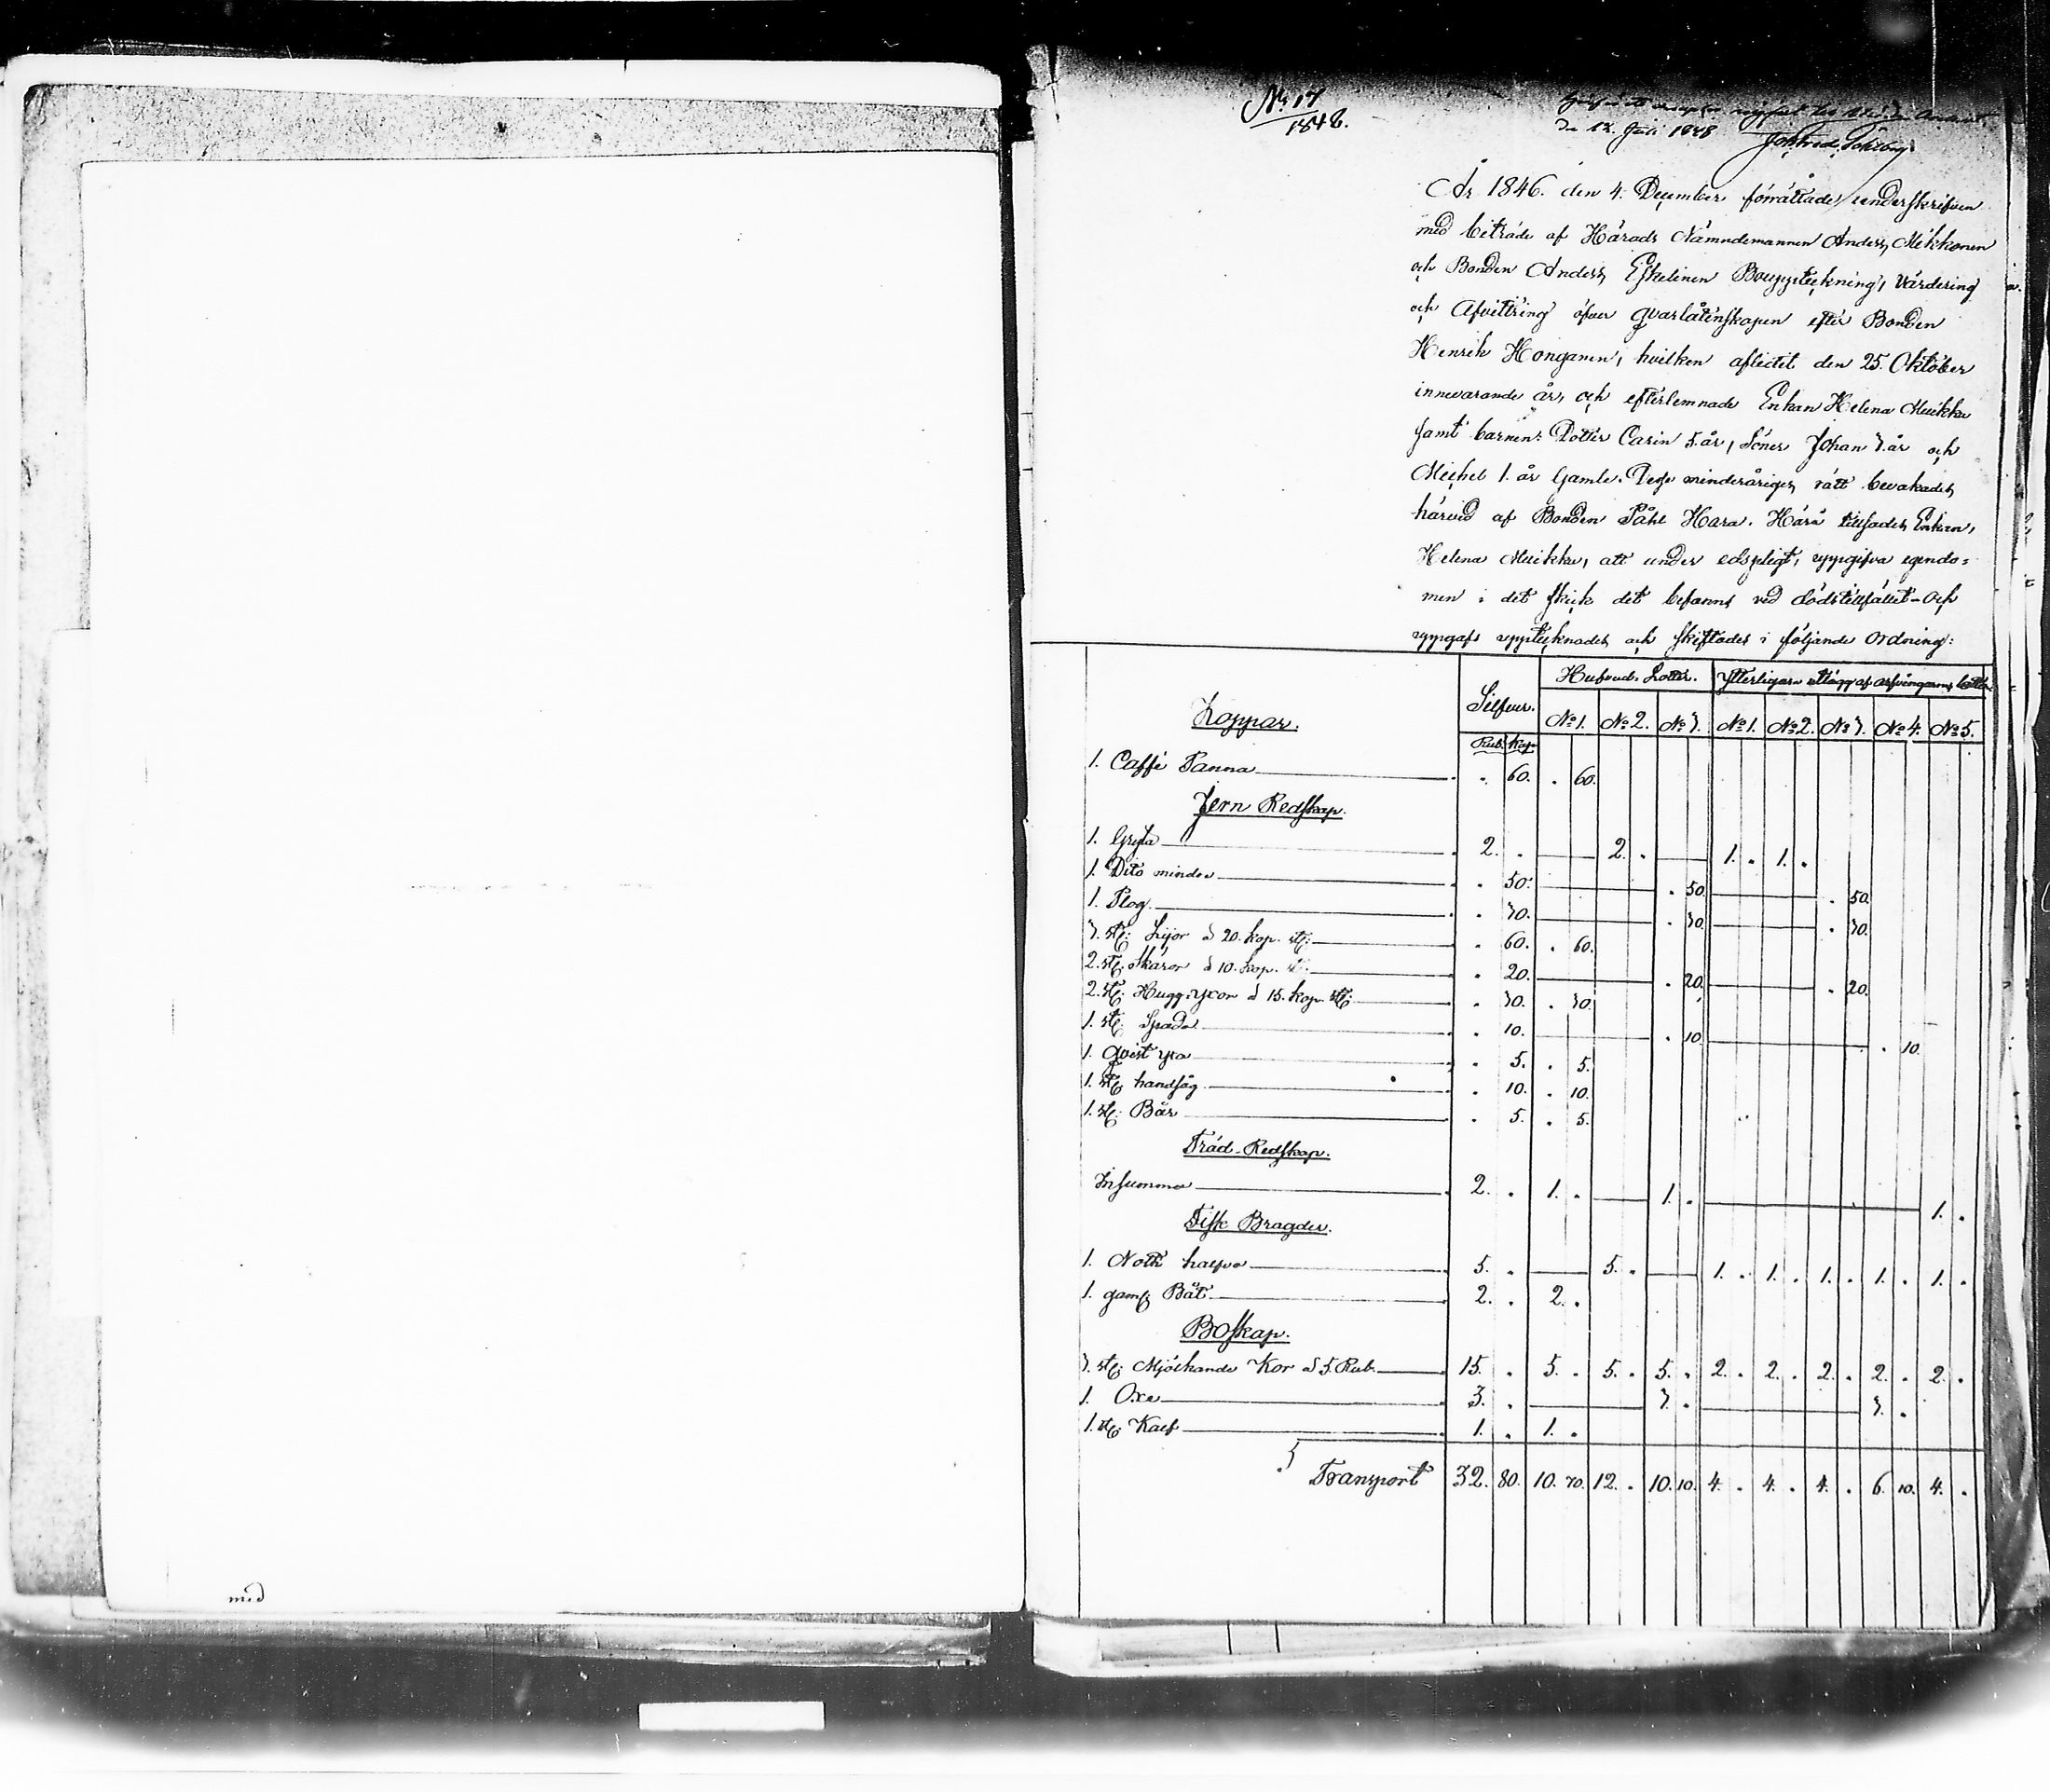 med
No 17
1848.
den 12. Juli 1848
År 1846. den 4. December, förrättade, underskrifven
med biträde af Härads Nämndemannen Anders, Mikkonen
och Bonden Anders, Eskelinen Bouppteckning, Värdering
och Afvittring öfver qvarlåtenskapen efter Bonden
Henrik Honganen, hvilken aflidit den 25. Oktober
innevarande år, och efterlemnade Enkan Helena Muikku
samt barnen: Dotter Carin 5. år, Söner Johan 3. år och
Michel 1. år Gamle. Desse minderåriges rätt bevakades
härvid af Bonden Påhl Hara. Härå tillsades Enkan,
Helena Muikku, att under edspligt, uppgifva egendo=
men i det skick det befanns ved dödstillfället - Och
uppgafs uppteknades och skiftades i följande Ordning:
Silfver. Hufvud. Lotter. Ytterligare utlägg af arfvingarnes lotter
Koppar. No 1. No 2. No 3. No 1. No 2. No 3. No 4. No 5.
Rub. kop
1. Caffe Panna . 60. . 60.
Jern Redskap.
1. Gryta 2. . 2. . 1. . 1. .
1. Dito mindre . 50. . 50. . 50.
1. Plog . 30. . 30. . 30.
3. st: Lijor à 20. kop. st: . 60. . 60.
2. st: Skäror à 10. kop. st: . 20. . 20. . 20.
2. st: Hugg-yxor à 15. kop st: . 30. . 30.
1. st: Spada . 10. . 10. . 10.
1. Qvist yxa . 5. . 5.
1. st: handsåg . 10. . 10.
1. st: Bår . 5. . 5.
Träd-Redskap.
Insumma 2. . 1. . 1. . 1. .
Fisk Bragder.
1. Noth halfva 5. . 5. . 1. . 1. . 1. . 1. . 1. .
1. gam: Båt 2. . 2. .
Boskap.
3. st: Mjölkande Kor à 5. Rub. 15. . 5. . 5. . 5. . 2. . 2. . 2. . 2. . 2. .
1. Oxe 3. . 3. . 3. .
1. st: Kalf 1. . 1. .
Transport 32. 80. 10. 70. 12. . 10. 10. 4. . 4. . 4. . 6. 10. 4. .